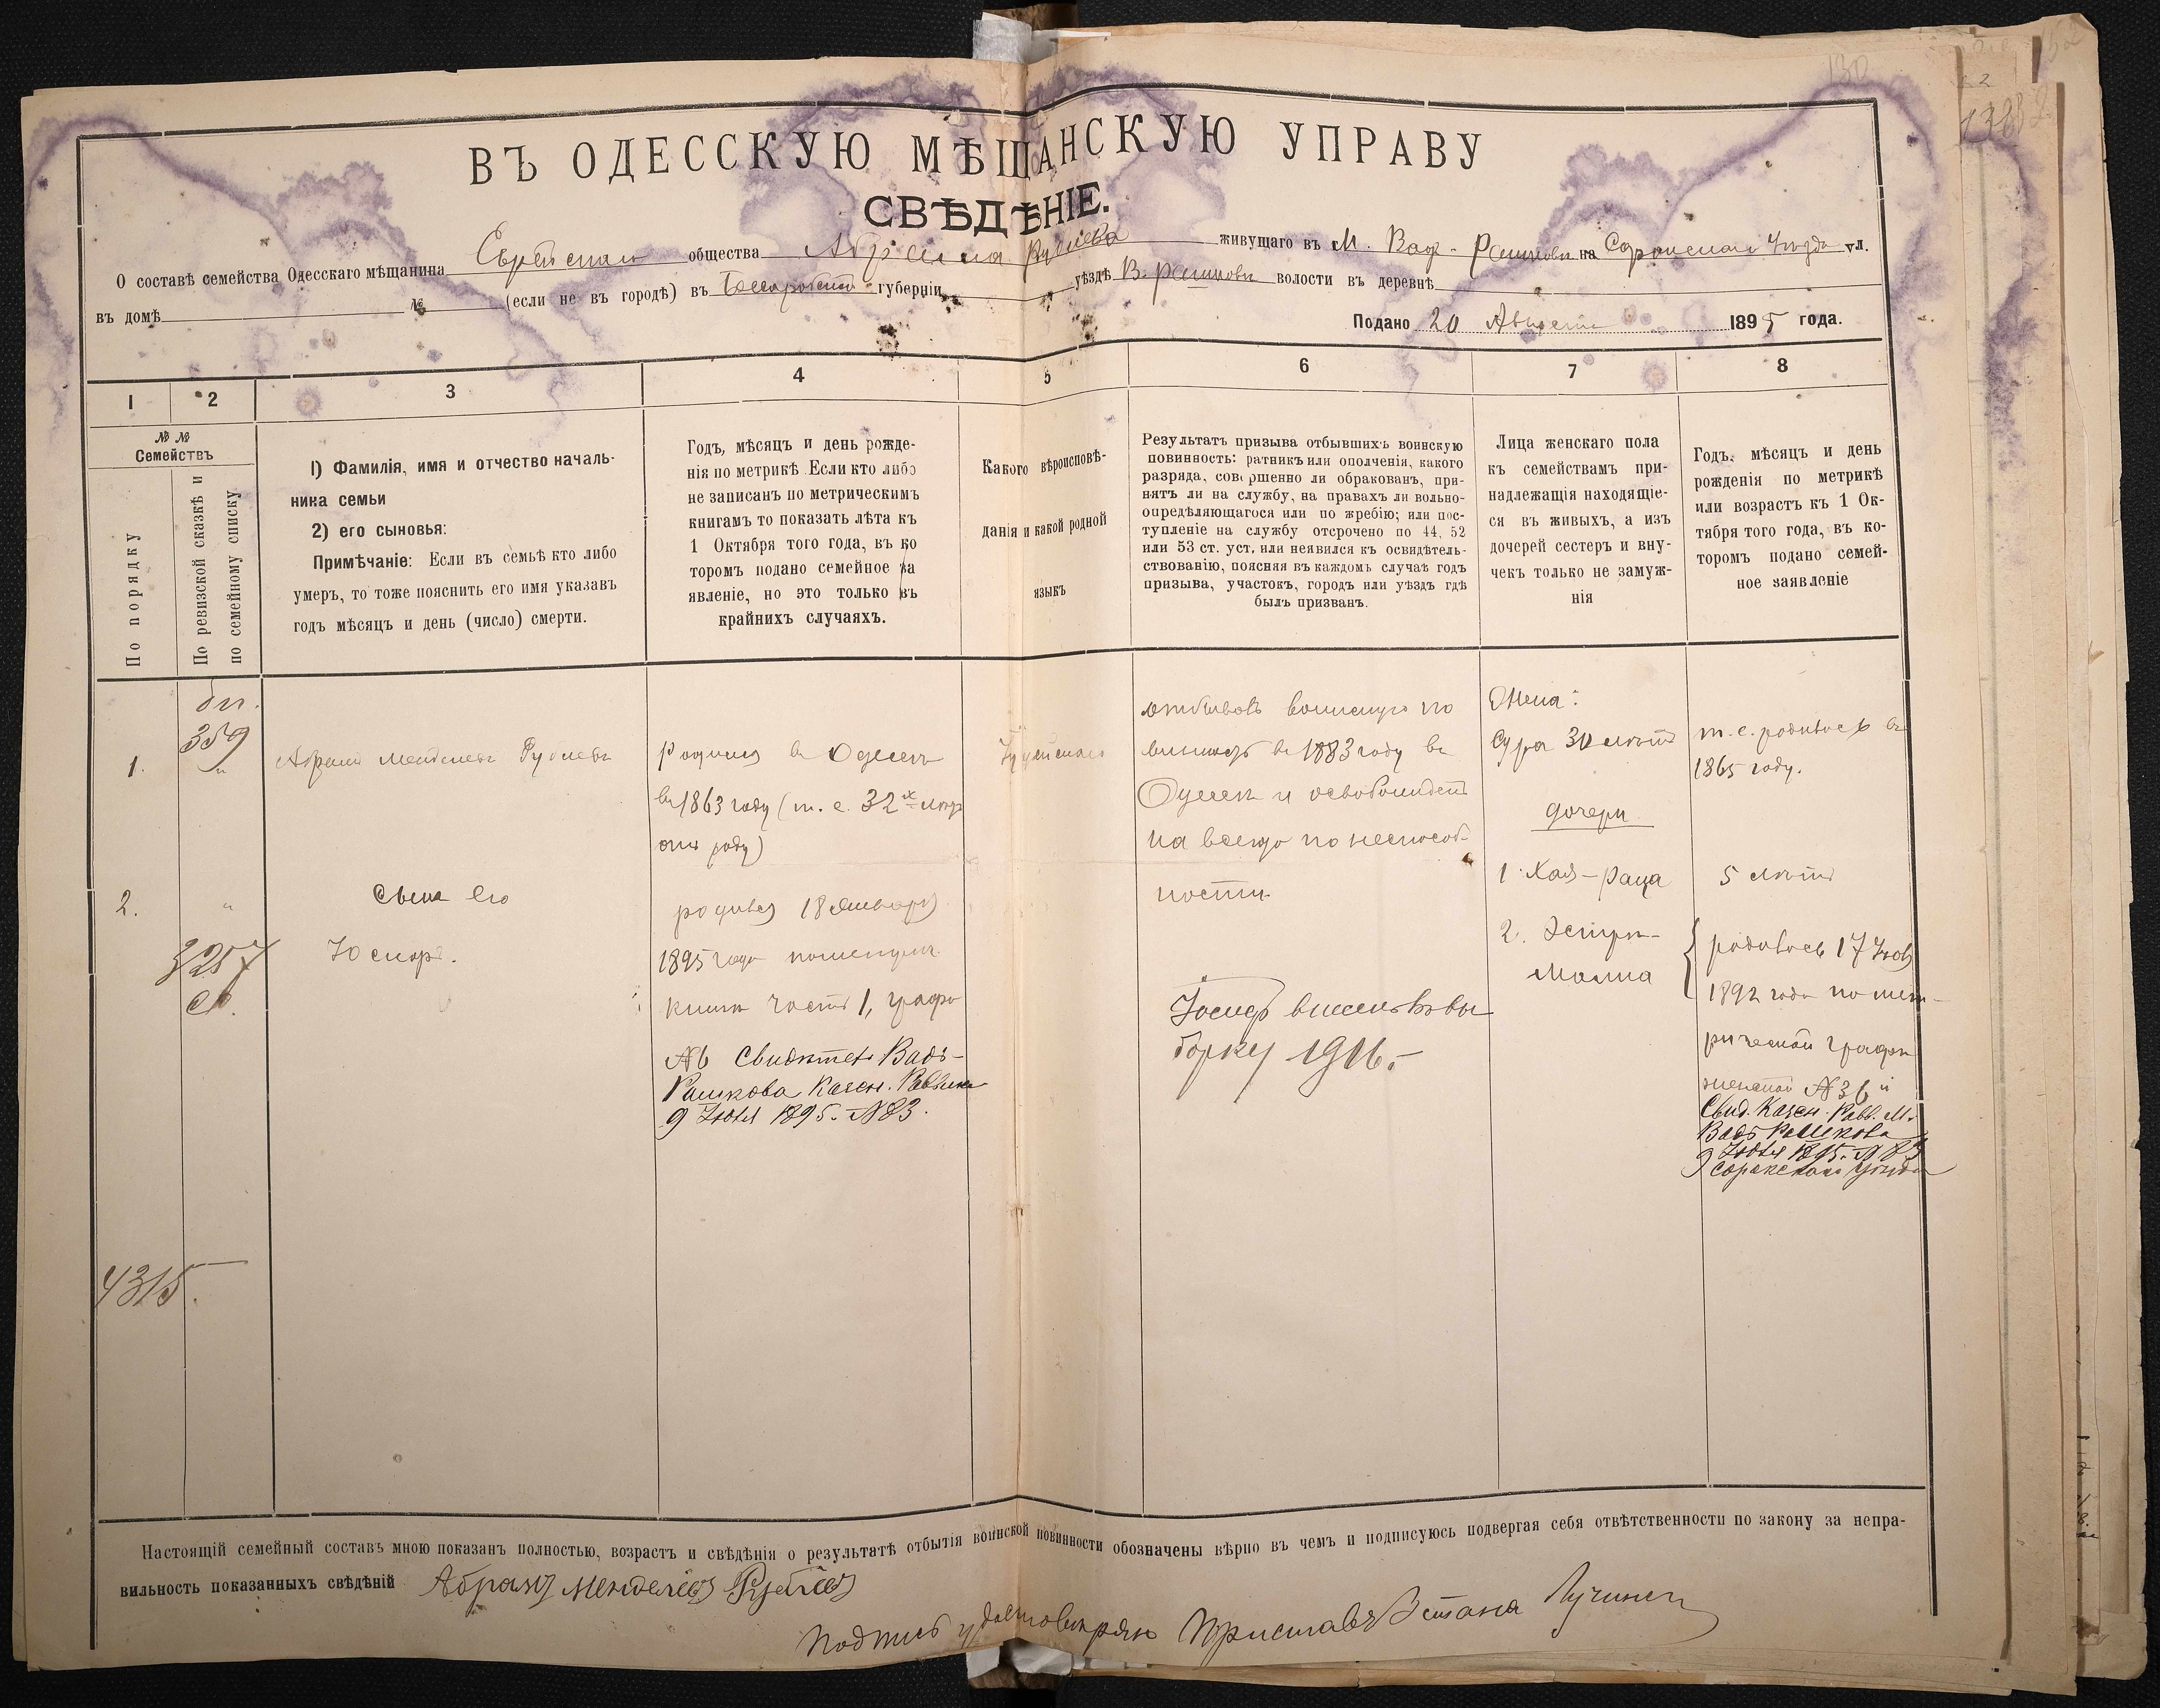 ВЪ ОДЕССКУЮ МѢЩАНСКУЮ УПРАВУ
СВѢДѢНІЕ.
О составѣ семейства Одесскаго мѣщанина Еврейскаго общества Абрама Рублева живущаго въ М. Вад-Рашковѣ на Сорокскаго Уѣзда ул.
въ домѣ № (если не въ городѣ) въ Бессарабской губерніи уѣздѣ В. Рашковѣ волости въ деревнѣ
Подано 20 Августа 1895 года.
1 2 3 4 5 6 7 8
№ №
Семействъ
По порядку
По ревизской сказкѣ и
по семейному списку
1) Фамилія, имя и отчество началь-
ника семьи
2) его сыновья:
Примѣчаніе: Если въ семьѣ кто либо
умеръ, то тоже пояснить его имя указавъ
годъ мѣсяцъ и день (число) смерти.
Годъ, мѣсяцъ и день рожде-
нія по метрикѣ Если кто либо
не записанъ по метрическимъ
книгамъ то показать лѣта къ
1 Октября того года, въ ко
торомъ подано семейное за
явленіе, но это только въ
крайнихъ случаяхъ.
Какого вѣроисповѣ-
данія и какой родной
языкъ
Результатъ призыва отбывшихъ воинскую
повинность: ратникъ или ополченія, какого
разряда, совершенно ли обракованъ, при-
нятъ ли на службу, на правахъ ли вольно-
опредѣляющагося или по жребію; или пос-
тупленіе на службу отсрочено по 44, 52
или 53 ст. уст. или неявился къ освидѣтель-
ствованію, поясняя въ каждомъ случаѣ годъ
призыва, участокъ, городъ или уѣздъ гдѣ
былъ призванъ.
Лица женскаго пола
къ семействамъ при-
надлежащія находящіе-
ся въ живыхъ, а изъ
дочерей сестеръ и вну-
чекъ только не замуж-
нія
Годъ, мѣсяцъ и день
рожденія по метрикѣ
или возрастъ къ 1 Ок-
тября того года, въ ко-
торомъ подано семей-
ное заявленіе
1.
359
"
Абрамъ Менделевъ Рублевъ
родился въ Одессѣ
въ 1863 году (т. е. 32х лѣтъ
отъ роду)
Іудейскаго
отбывалъ воинскую по
винность въ 1883 году въ
Одессѣ и освобожденъ
на всегда по неспособ-
ности
Жена:
Сура 30 лѣтъ
т. е. родилась въ
1865 году.
дочери
1. Хая-Раца
5 лѣтъ
2. Эстеръ-
Малка
родилась 17 Іюля
1892 года по мет-
рической графѣ
женской № 36 и
Свид. Казен. Равв. М.
Вадъ Рашкова
9 Іюля 1895. № 83
Сорокскаго Уѣзда
2.
"
3257
Сына его
Іосифъ.
родился 18 Января
1895 года по метрич.
книги часть 1, графа
№ 6 Свидѣтел. Вадъ-
Рашкова Казен. Раввина
9 Іюля 1895. № 83.
Іосифъ внесенъ въ вы
борку 1916.
4315.
Настоящій семейный составъ мною показанъ полностью, возрастъ и свѣдѣнія о результатѣ отбытія воинской повинности обозначены вѣрно въ чемъ и подписуюсь подвергая себя отвѣтственности по закону за непра-
вильность показанныхъ свѣдѣній Абрамъ Менделевъ Рублев
Подпись удостовѣряю Приставъ 3 стана